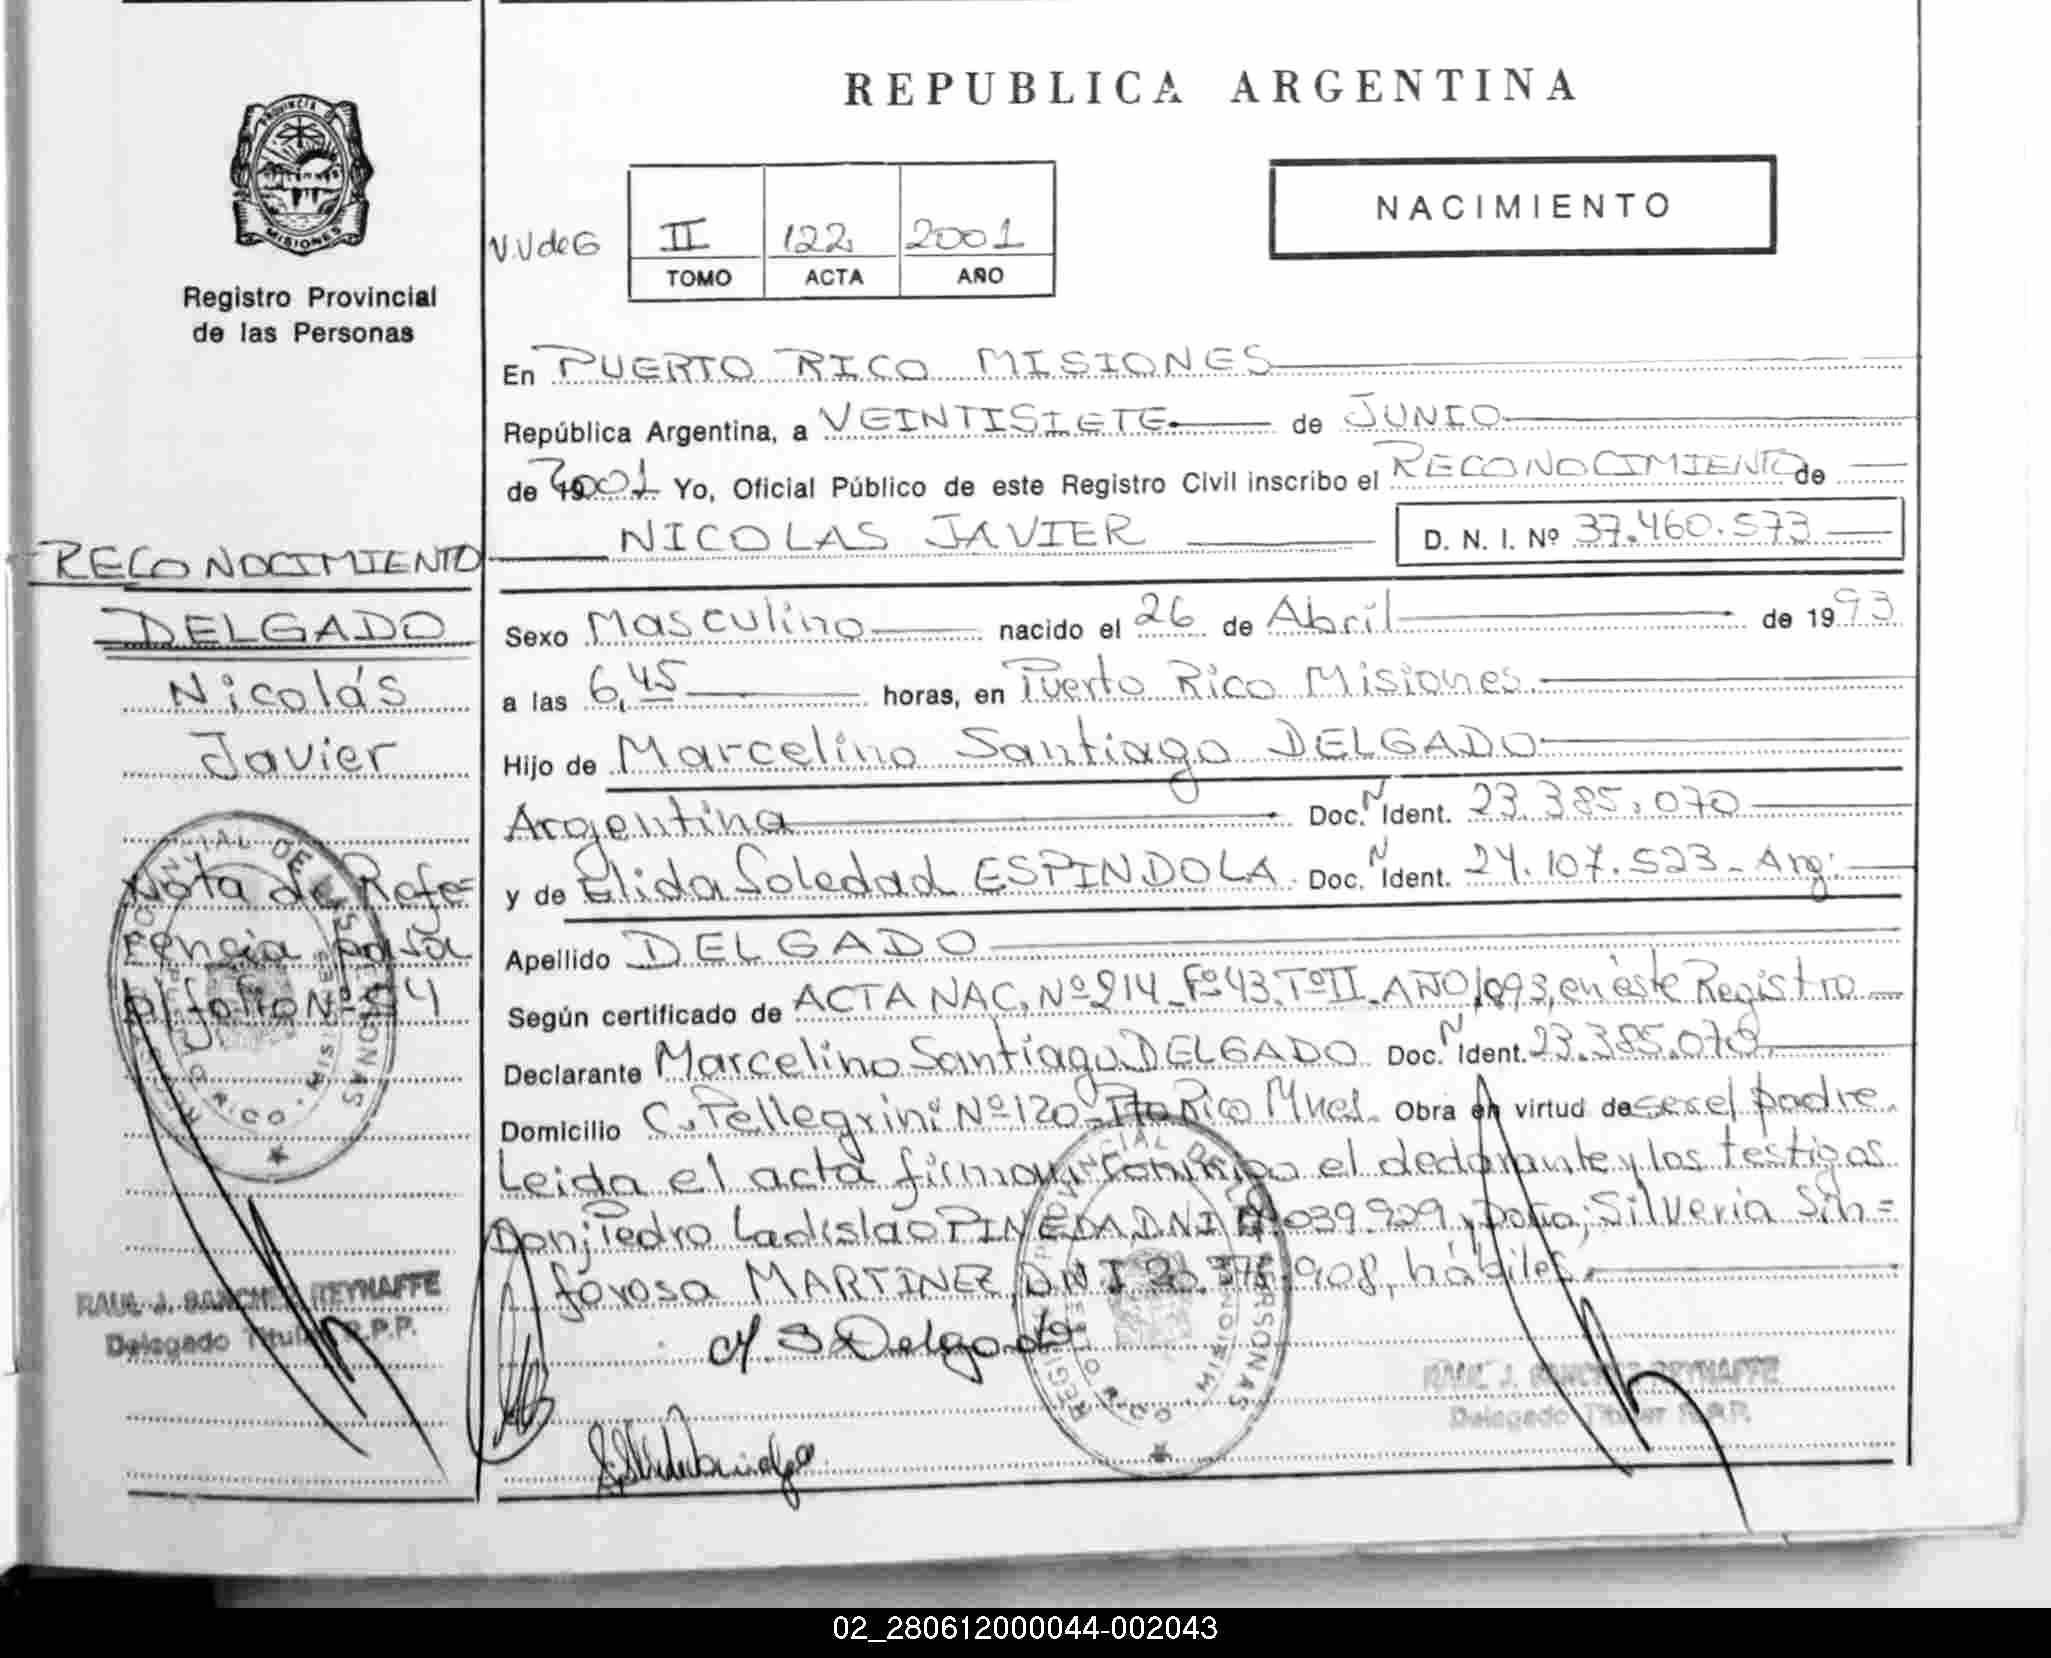 REPUBLICA ARGENTINA
PROVINCIA DE
MISIONES
Registro Provincial
de las Personas
NACIMIENTO
V.V de G
II 122 2001
TOMO ACTA AÑO
En PUERTO RICO MISIONES
República Argentina, a VEINTISIETE de JUNIO
de 2001 Yo, Oficial Público de este Registro Civil inscribo el RECONOCIMIENTO de
NICOLAS JAVIER D. N. I. Nº 37.460.573
Sexo Masculino nacido el 26 de Abril de 1993
a las 6,45 horas, en Puerto Rico Misiones
Hijo de Marcelino Santiago DELGADO
Argentina Doc. N Ident. 23.385.070
y de Elida Soledad ESPINDOLA Doc. N Ident. 24.107.523 - Arg.
Apellido DELGADO
Según certificado de ACTA NAC. Nº 214 Fº 43 Tº II AÑO 1993, en éste Registro
Declarante Marcelino Santiago DELGADO Doc. N Ident. 23.385.070
Domicilio C. Pellegrini Nº 120 - Pto Rico Mnes. Obra en virtud de ser el padre.
Leida el acta firman conmigo el declarante y los testigos
Don; Pedro Ladislao PINEDA DNI 039.909 y Doña; Silveria Sin=
forosa MARTINEZ, DNI 908, hábiles.
M. S Delgado
RAUL J. SANCHEZ REYNAFFE
Delegado Titular R.P.P.
RECONOCIMIENTO
DELGADO
Nicolás
Javier
Nota de Refe=
rencia pasa
p/ folio Nº 54
RAUL J. SANCHEZ REYNAFFE
Delegado Titular R.P.P.
02_280612000044-002043